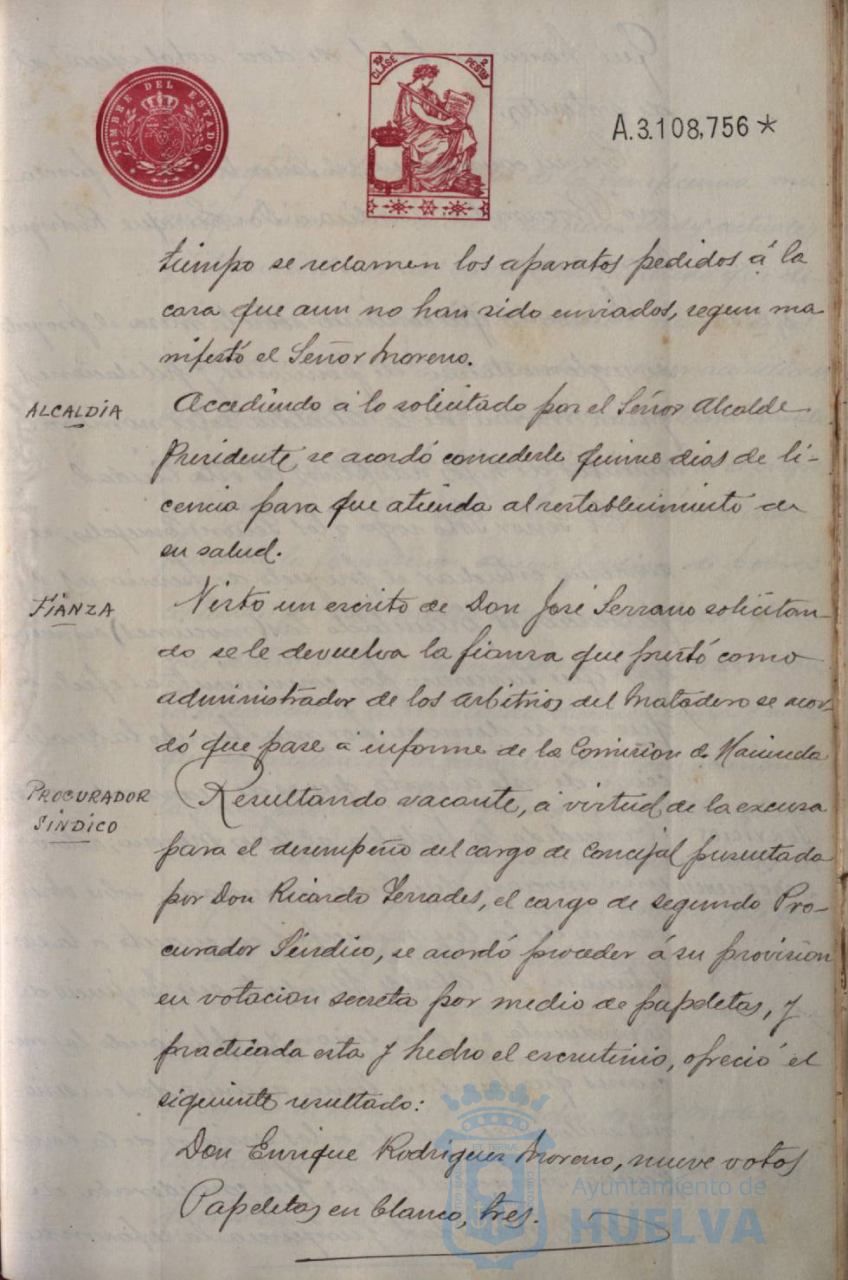 TIMBRE DEL ESTADO
10ª CLASE 2 PESTAS
A.3.108,756*
tiempo se reclamen los aparatos pedidos á la
casa que aun no han sido enviados, segun ma-
nifestó el Señor Moreno.
ALCALDÍA
Accediendo á lo solicitado por el Señor Alcalde
Presidente se acordó concederle quince dias de li-
cencia para que atienda al restablecimiento de
su salud.
FIANZA
Visto un escrito de Don José Serrano solicitan-
do se le devuelva la fianza que prestó como
administrador de los arbitrios del Matadero se acor-
dó que pase á informe de la Comision de Hacienda
PROCURADOR
SINDICO
Resultando vacante, á virtud de la excusa
para el desempeño del cargo de Concejal presentada
por Don Ricardo Terrades, el cargo de segundo Pro-
curador Síndico, se acordó proceder á su provision
en votacion secreta por medio de papeletas, y
practicada esta y hecho el escrutinio, ofreció el
siguiente resultado:
Don Enrique Rodriguez Moreno, nueve votos
Papeletas en blanco, tres.
Ayuntamiento de
HUELVA